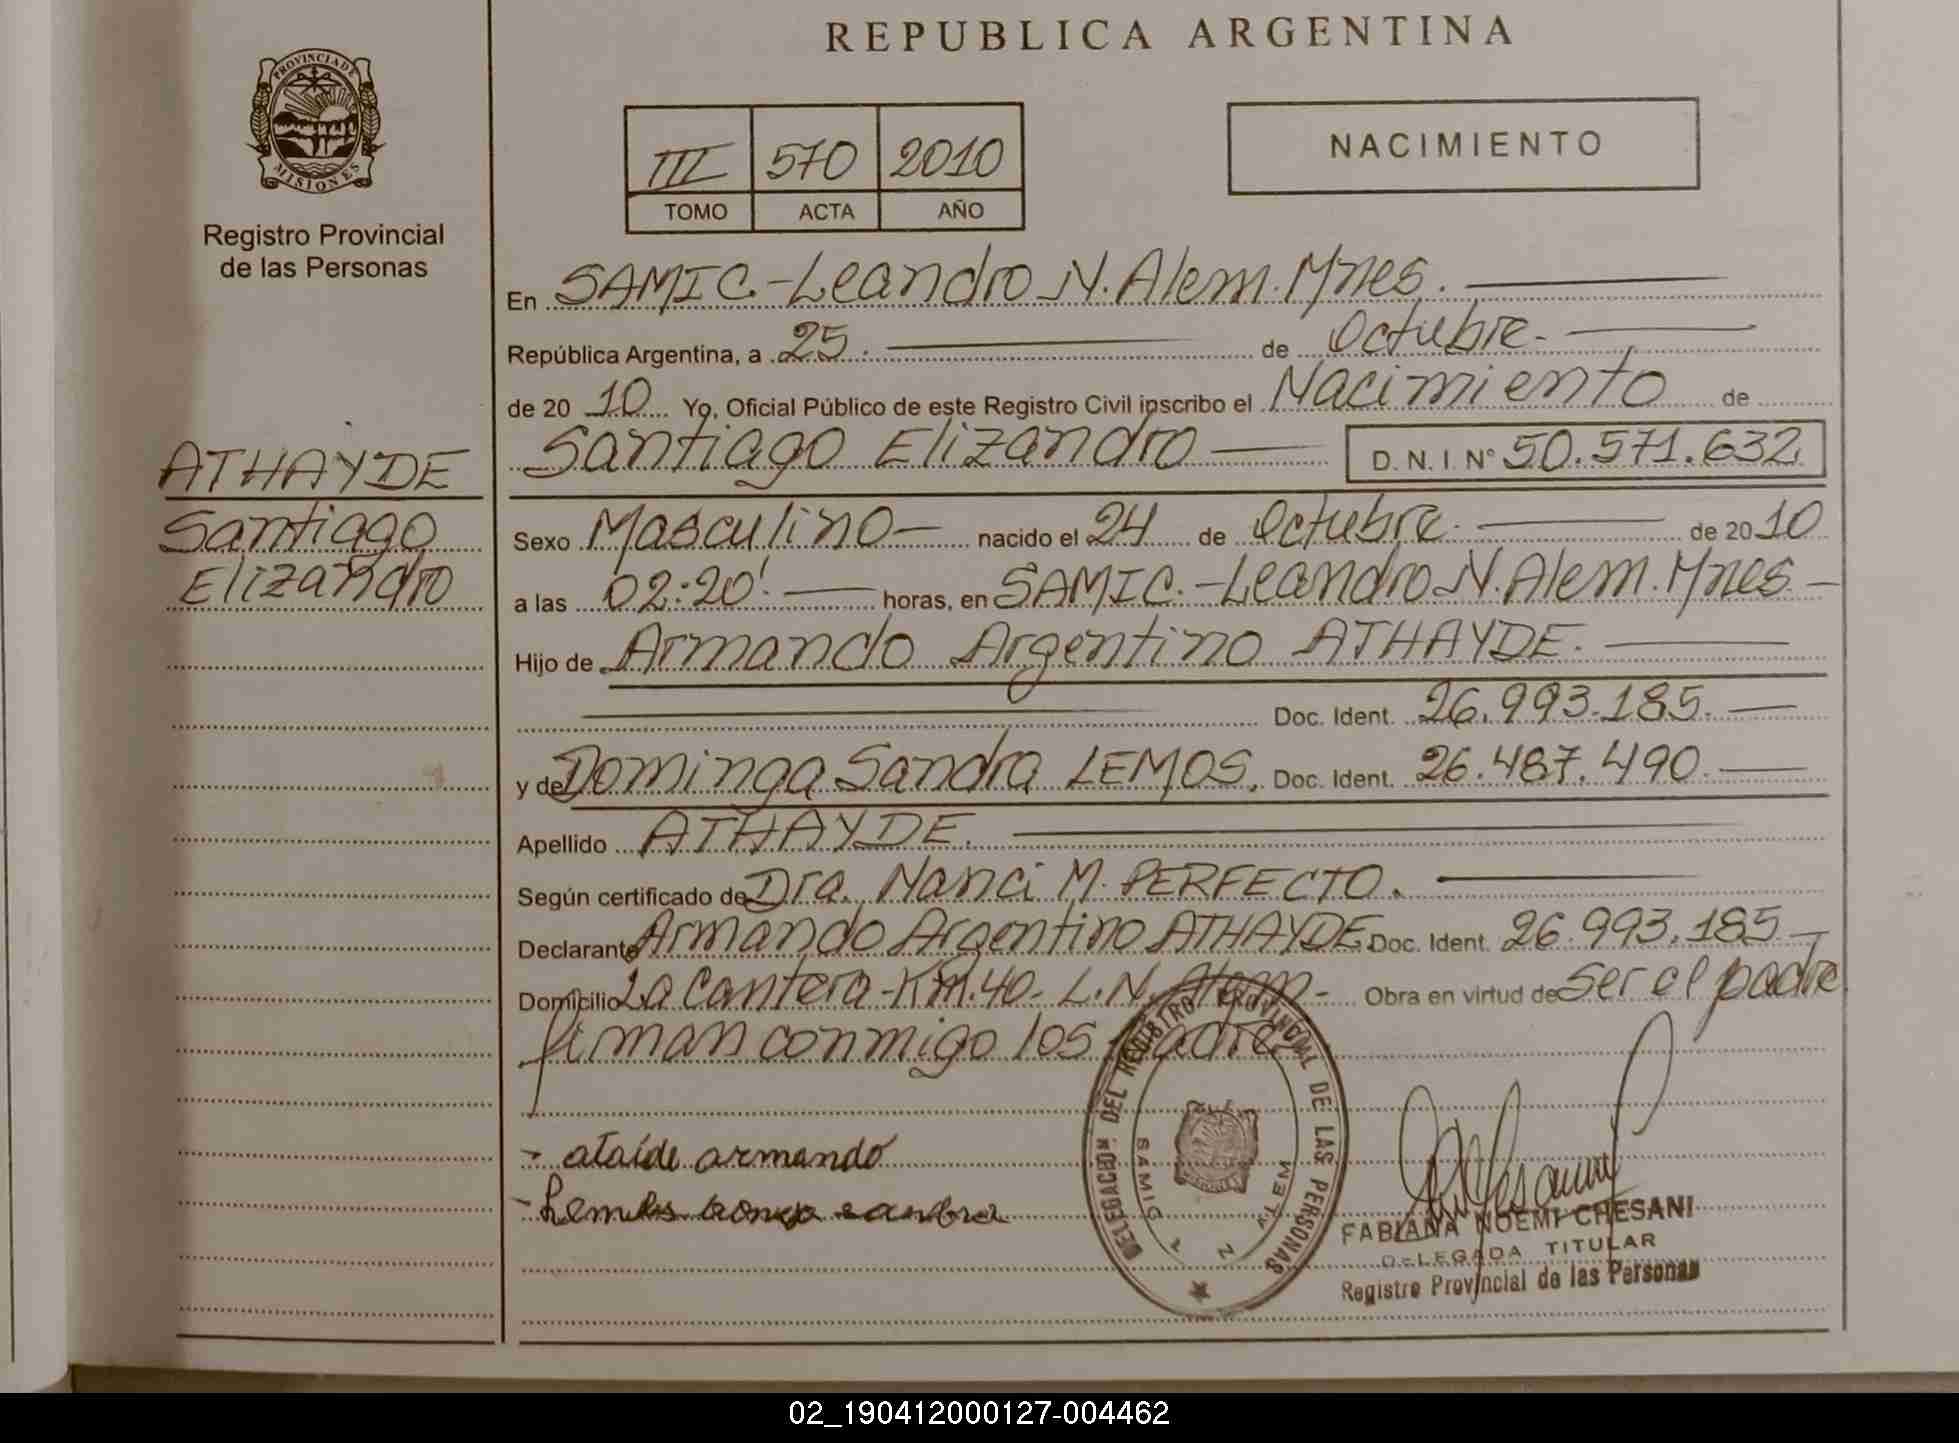 REPUBLICA ARGENTINA
PROVINCIA DE
MISIONES
Registro Provincial
de las Personas
III 570 2010
TOMO ACTA AÑO
NACIMIENTO
En SAMIC.-Leandro N. Alem. Mnes.
República Argentina, a 25. de Octubre.
de 20 10 Yo, Oficial Público de este Registro Civil inscribo el Nacimiento de
Santiago Elizandro D.N.I. N° 50.571.632
ATHAYDE
Santiago
Elizandro
Sexo Masculino nacido el 24 de Octubre. de 20 10
a las 02:20'. horas, en SAMIC.-Leandro N. Alem. Mnes
Hijo de Armando Argentino ATHAYDE.
Doc. Ident. 26.993.185.
y de Dominga Sandra LEMOS, Doc. Ident. 26.487.490.
Apellido ATHAYDE.
Según certificado de Dra. Nanci M. PERFECTO.
Declarante Armando Argentino ATHAYDE, Doc. Ident. 26.993.185
Domicilio La Cantera-Km.40- L.N. Alem- Obra en virtud de Ser el padre
firman conmigo los padres
- ataide armando
DELEGACION DEL REGISTRO PROVINCIAL DE LAS PERSONAS
SAMIC L N ALEM
FABIANA NOEMI CHESANI
DELEGADA TITULAR
Registro Provincial de las Personas
02_190412000127-004462